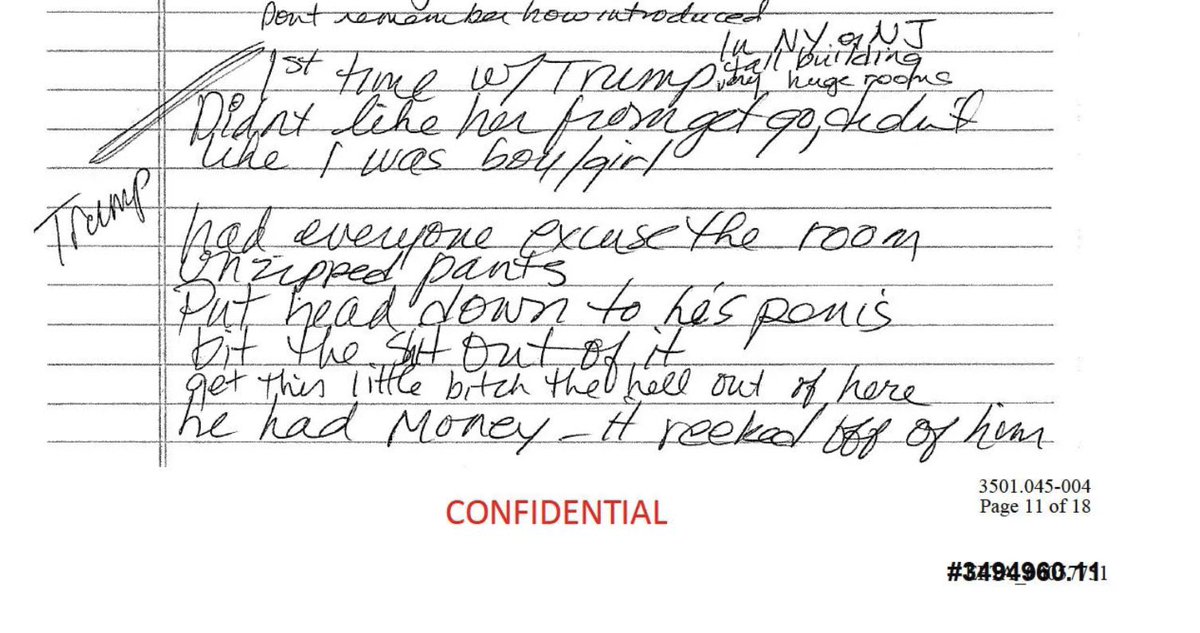 Dont remember how introduced
In NY or NJ
tall building
very huge rooms
1st time w/ Trump
Didnt like her from get go, didn't
like I was boy/girl
Trump
had everyone excuse the room
Unzipped pants
Put head down to his penis
bit the shit out of it
get this little bitch the hell out of here
he had Money – It reeked off of him
CONFIDENTIAL
3501.045-004
Page 11 of 18
#3494960.11